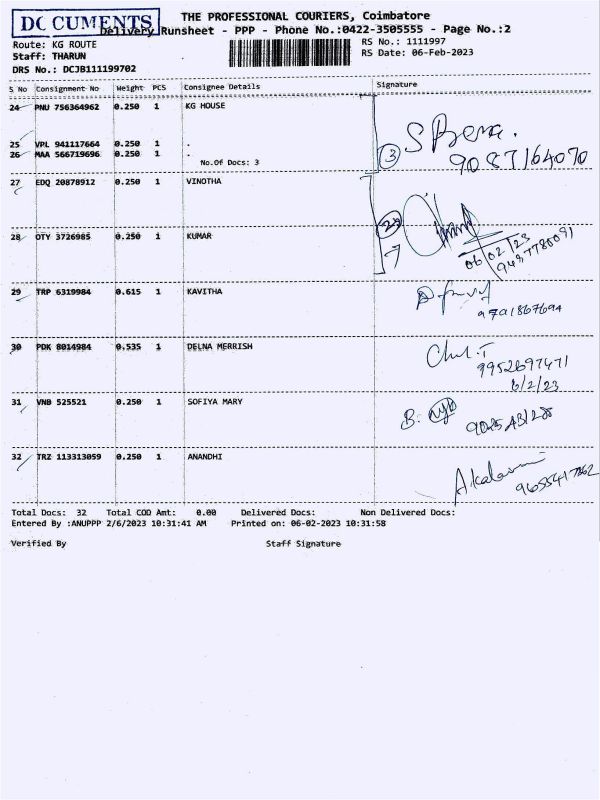 DOCUMENTS
THE PROFESSIONAL COURIERS, Coimbatore
Delivery Runsheet - PPP - Phone No.:0422-3505555 - Page No.:2
Route: KG ROUTE
Staff: THARUN
DRS No.: DCJB111199702
RS No.: 1111997
RS Date: 06-Feb-2023
S No Consignment No Weight PCS Consignee Details Signature
24 PNU 756364962 0.250 1 KG HOUSE
25 VPL 941117664 0.250 1 .
26 MAA 566719696 0.250 1 .
No.Of Docs: 3
3
9087164070
27 EDQ 20878912 0.250 1 VINOTHA
28 OTY 3726985 0.250 1 KUMAR
06/02/23
29 TRP 6319984 0.615 1 KAVITHA
9791867694
30 PDK 8014984 0.535 1 DELNA MERRISH
9952697471
6/2/23
31 VNB 525521 0.250 1 SOFIYA MARY
32 TRZ 113313059 0.250 1 ANANDHI
9655417862
Total Docs: 32 Total COD Amt: 0.00 Delivered Docs: Non Delivered Docs:
Entered By :ANUPPP 2/6/2023 10:31:41 AM Printed on: 06-02-2023 10:31:58
Verified By Staff Signature